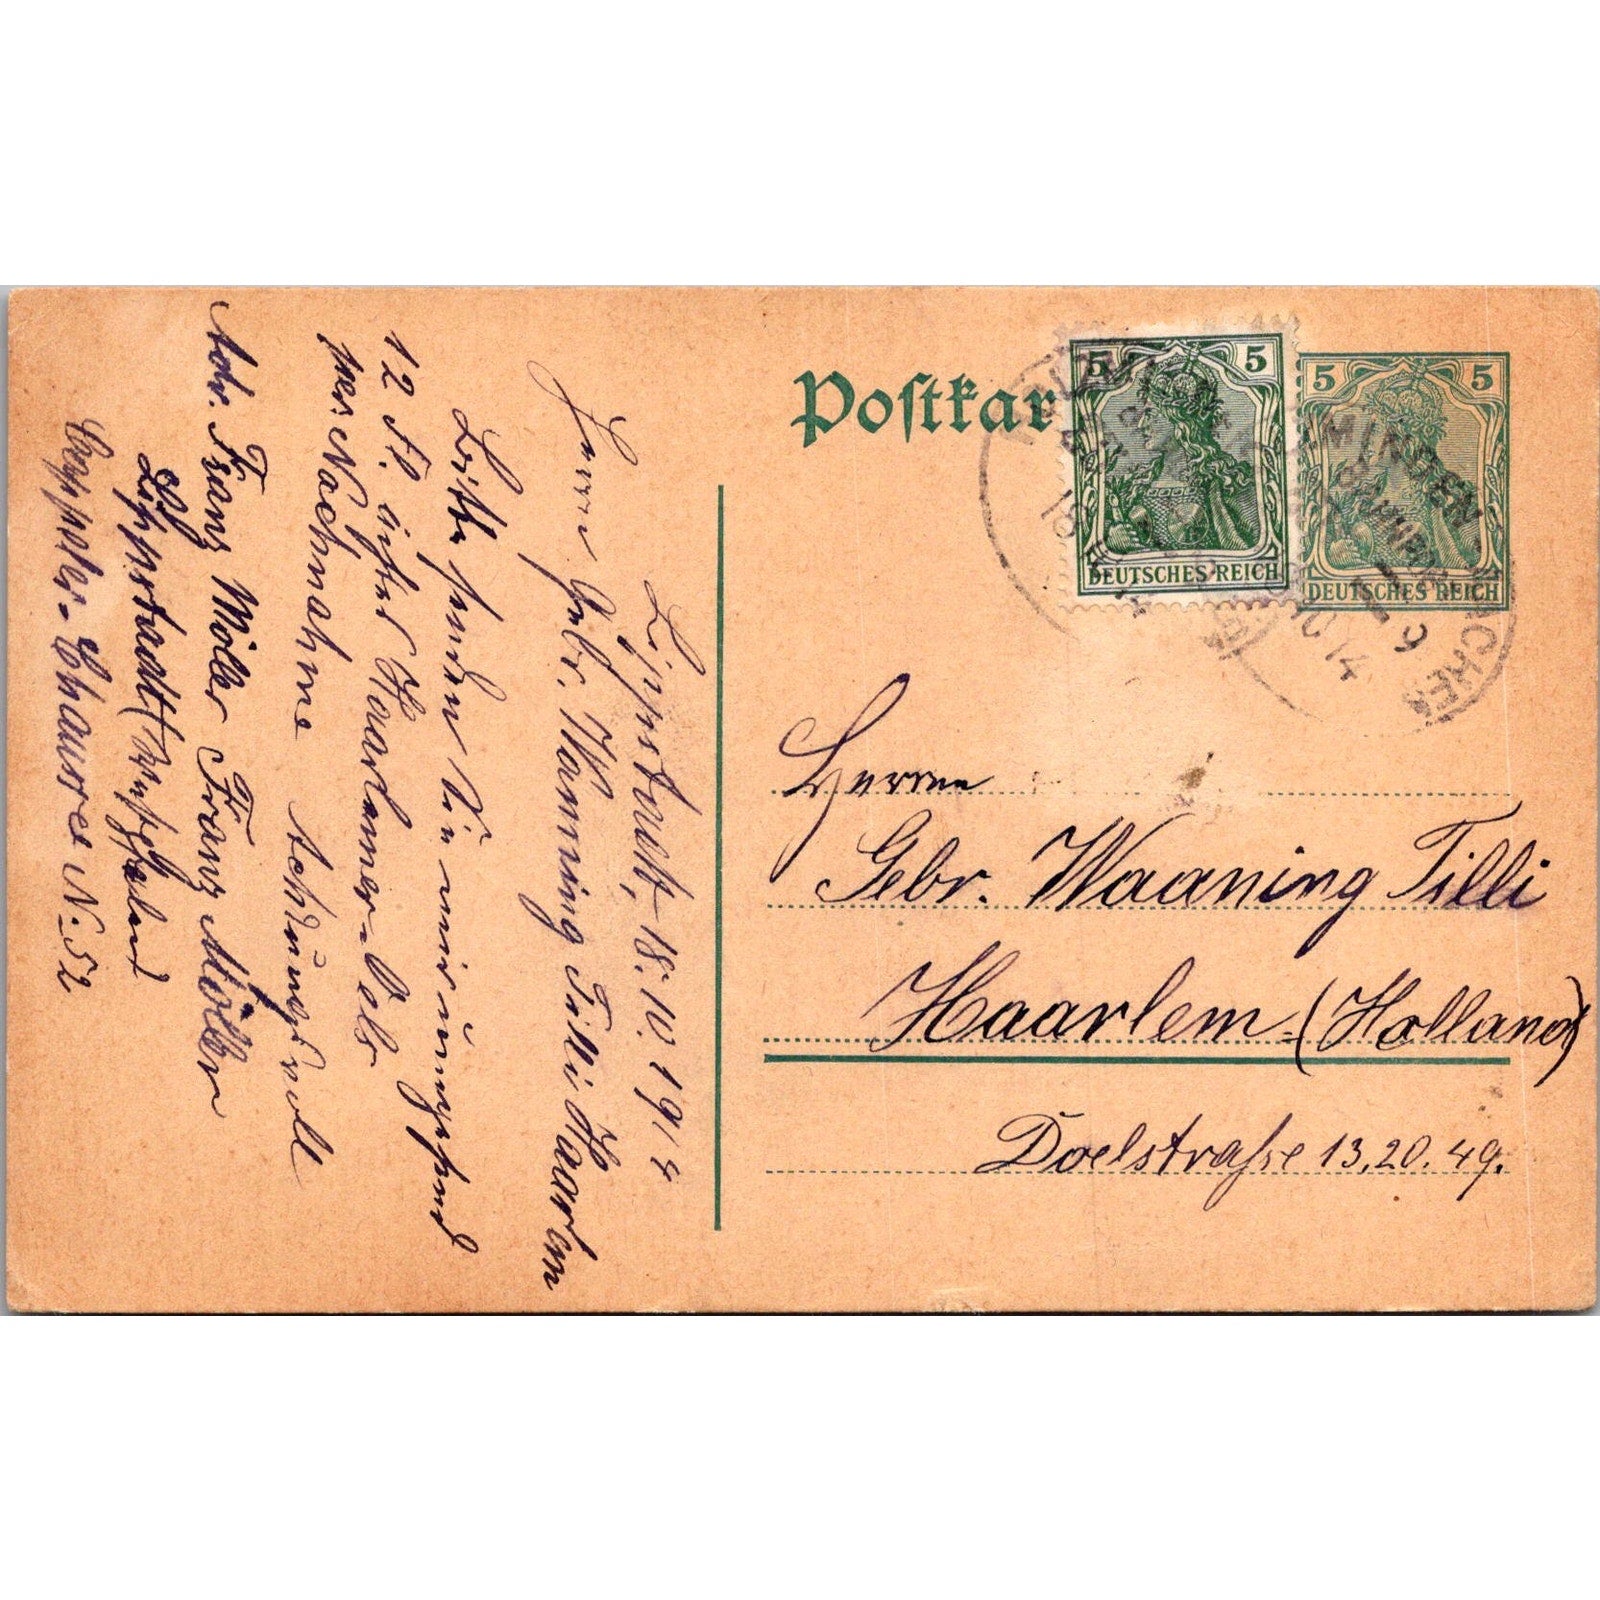 Postkar
5 5
DEUTSCHES REICH
5 5
DEUTSCHES REICH
HOLZMINDEN
MINDEN AACHEN
BAHNPOST
Herren
Gebr. Waaning Tilli
Haarlem (Holland)
Doelstraße 13.20.49.
Lippstadt, 18.10.1914
Herrn Gebr. Waaning Tilli Haarlem
Bitte senden Sie mir umgehend
12 Fl. ächtes Haarlemer-Oels
per Nachnahme
Achtungsvoll
Franz Möller
Adr. Franz Möller
Lippstadt (Westfalen)
Cappeler-Chaussee N. 52